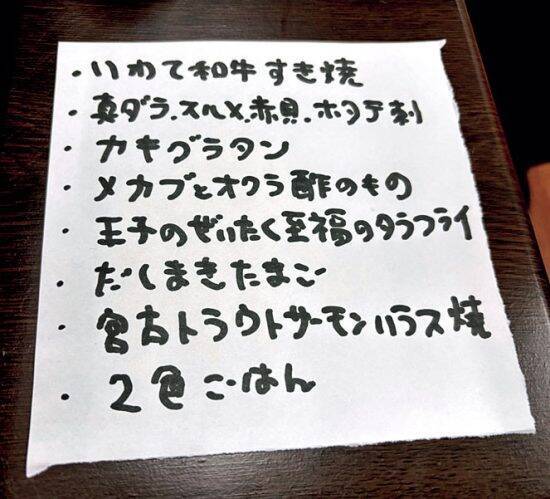 ・いわて和牛すき焼
・真ダラ.スルメ.赤貝.ホタテ刺
・カキグラタン
・メカブとオクラ酢のもの
・王子のぜいたく至福のタラフライ
・だしまきたまご
・宮古トラウトサーモンハラス焼
・2色ごはん